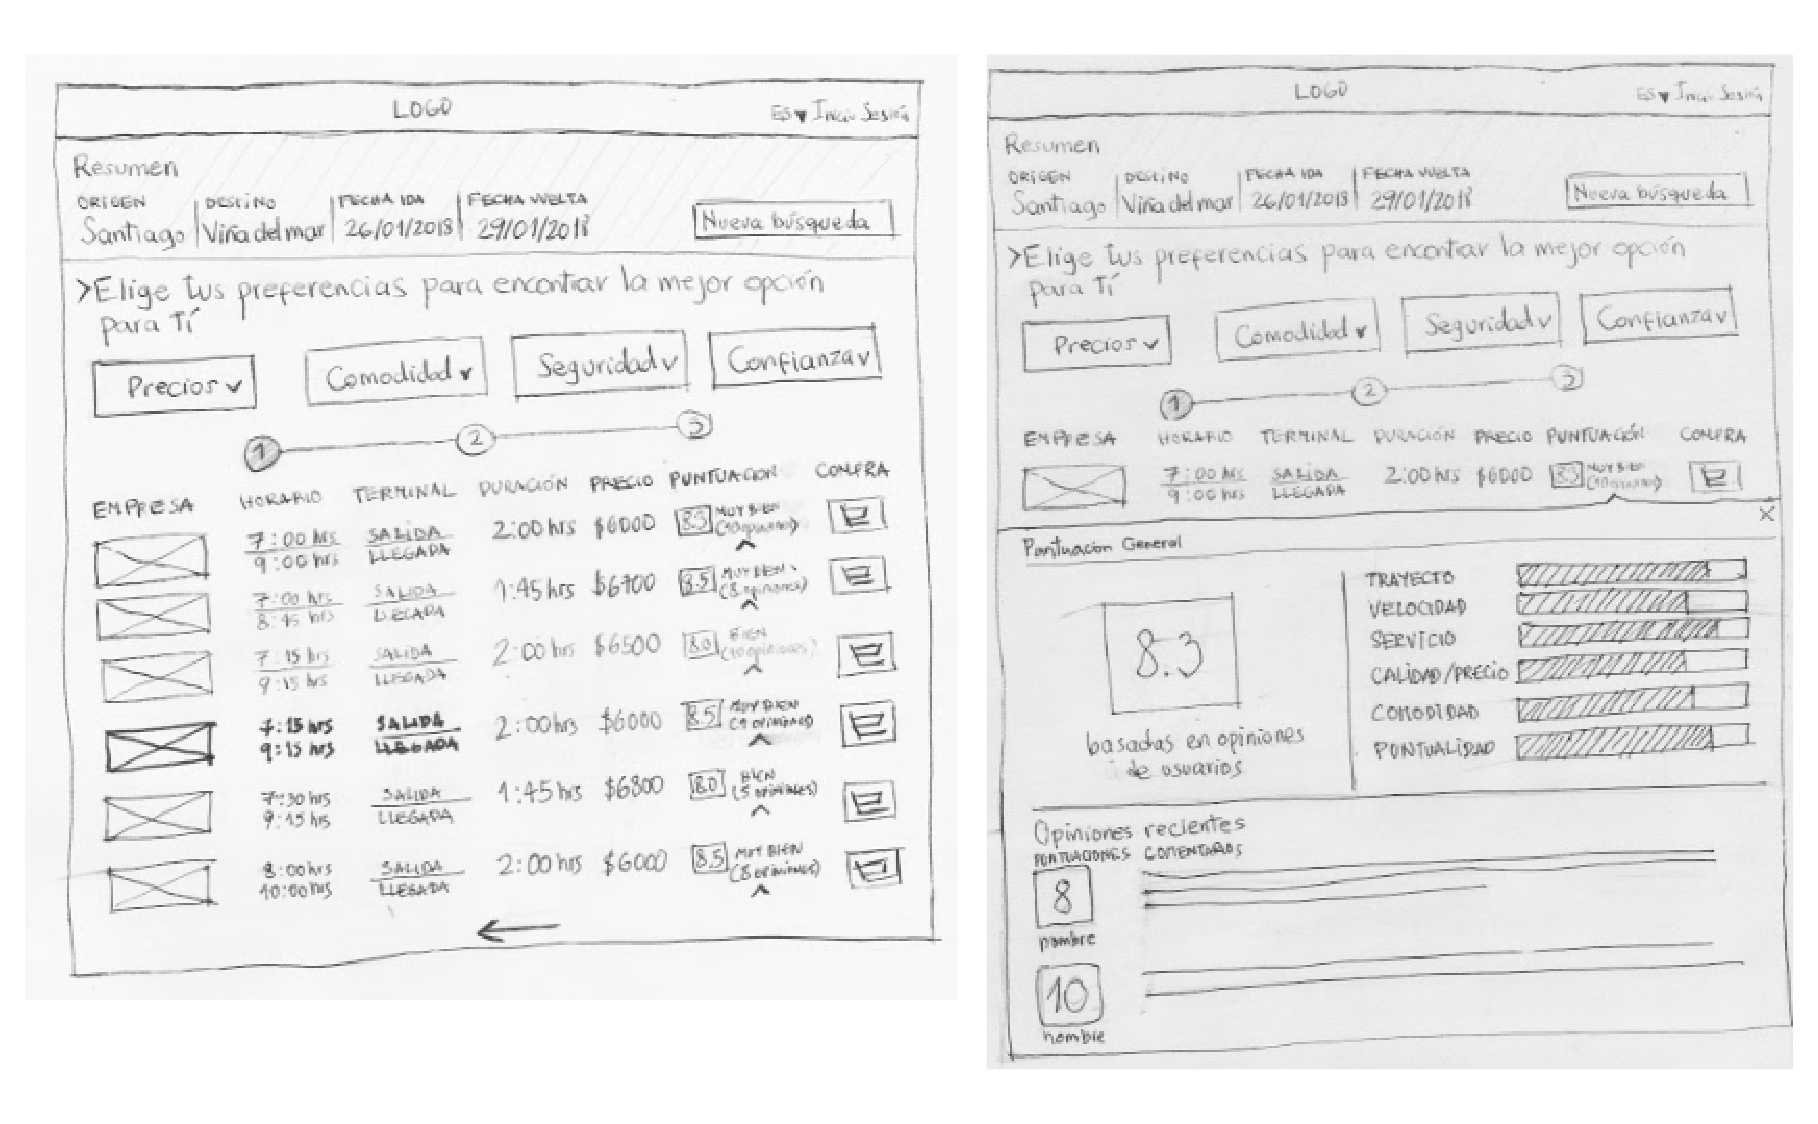 LOGO
ES Inici Sesión
Resumen
ORIGEN DESTINO FECHA IDA FECHA VUELTA
Santiago Viña del mar 26/01/2018 29/01/2018 Nueva búsqueda
>Elige tus preferencias para encontrar la mejor opción
para Tí
Precios Comodidad Seguridad Confianza
1 2 3
EMPRESA HORARIO TERMINAL DURACIÓN PRECIO PUNTUACIÓN COMPRA
7:00 hrs SALIDA 2:00 hrs $6000 8.3 MUY BIEN
9:00 hrs LLEGADA (10 opiniones)
7:00 hrs SALIDA 1:45 hrs $6700 8.5 MUY BIEN
8:45 hrs LLEGADA (8 opiniones)
7:15 hrs SALIDA 2:00 hrs $6500 8.0 BIEN
9:15 hrs LLEGADA (10 opiniones)
7:15 hrs SALIDA 2:00 hrs $6000 8.5 MUY BIEN
9:15 hrs LLEGADA (9 opiniones)
7:30 hrs SALIDA 1:45 hrs $6800 8.0 BIEN
9:15 hrs LLEGADA (5 opiniones)
8:00 hrs SALIDA 2:00 hrs $6000 8.5 MUY BIEN
10:00 hrs LLEGADA (8 opiniones)
LOGO
ES Inici Sesión
Resumen
ORIGEN DESTINO FECHA IDA FECHA VUELTA
Santiago Viña del mar 26/01/2018 29/01/2018 Nueva búsqueda
>Elige tus preferencias para encontrar la mejor opción
para Tí
Precios Comodidad Seguridad Confianza
1 2 3
EMPRESA HORARIO TERMINAL DURACIÓN PRECIO PUNTUACIÓN COMPRA
7:00 hrs SALIDA 2:00 hrs $6000 8.3 MUY BIEN
9:00 hrs LLEGADA (10 opiniones)
X
Puntuación General
8.3
basadas en opiniones
de usuarios
TRAYECTO
VELOCIDAD
SERVICIO
CALIDAD/PRECIO
COMODIDAD
PUNTUALIDAD
Opiniones recientes
PUNTUACIONES COMENTARIOS
8
nombre
10
nombre